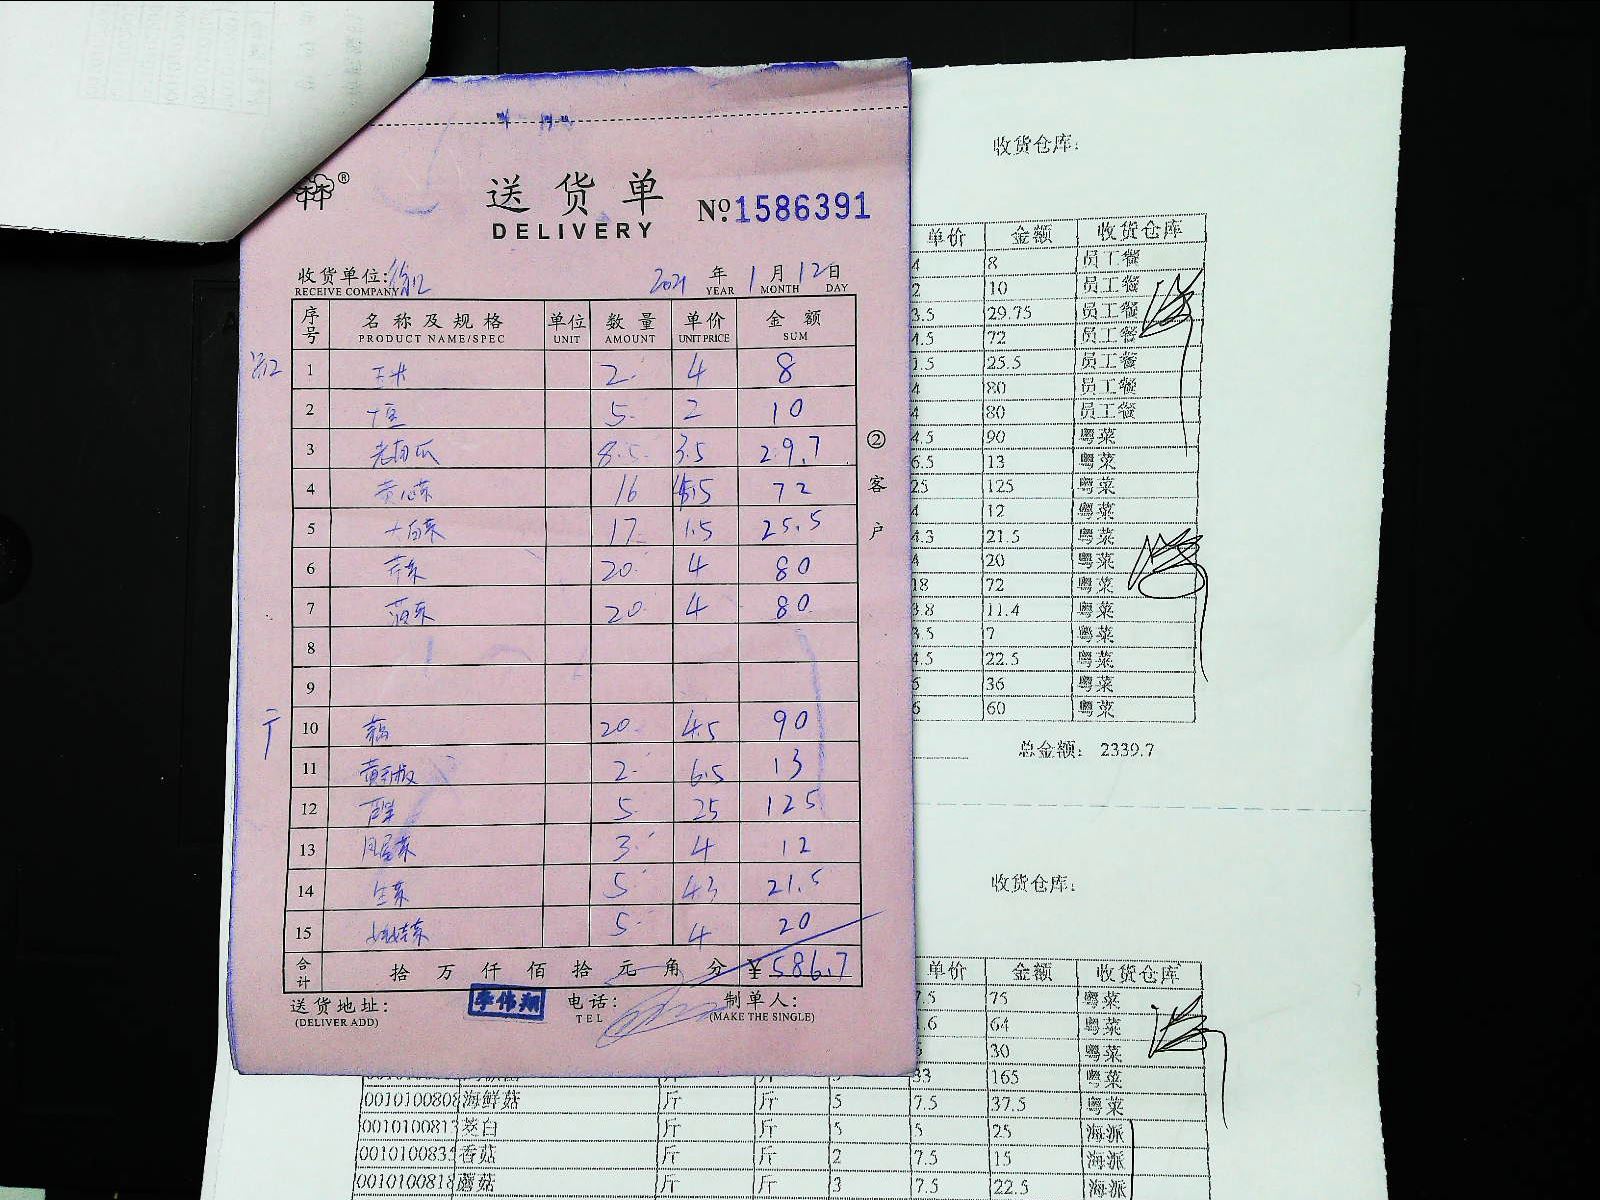 送货单
DELIVERY
№ 1586391
收货单位: 徐汇 2021 年 1 月 12 日
RECEIVE COMPANY YEAR MONTH DAY
序号 名称及规格 单位 数量 单价 金额
PRODUCT NAME/SPEC UNIT AMOUNT UNIT PRICE SUM
1 玉米 2 4 8
2 土豆 5 2 10
3 老南瓜 8.5 3.5 29.7
4 黄心菜 16 4.5 72
5 大白菜 17 1.5 25.5
6 芹菜 20 4 80
7 菠菜 20 4 80
8
9
10 20 4.5 90
11 2 6.5 13
12 5 25 125
13 3 4 12
14 生菜 5 4.3 21.5
15 娃娃菜 5 4 20
合计 拾万仟佰拾元角分 ¥ 586.7
送货地址: 李伟翔 电话: 制单人:
(DELIVER ADD) TEL (MAKE THE SINGLE)
② 客户
收货仓库:
单价 金额 收货仓库
4 8 员工餐
2 10 员工餐
3.5 29.75 员工餐
4.5 72 员工餐
1.5 25.5 员工餐
4 80 员工餐
4 80 员工餐
4.5 90 粤菜
6.5 13 粤菜
25 125 粤菜
4 12 粤菜
4.3 21.5 粤菜
4 20 粤菜
18 72 粤菜
3.8 11.4 粤菜
3.5 7 粤菜
4.5 22.5 粤菜
6 36 粤菜
6 60 粤菜
总金额: 2339.7
收货仓库:
单价 金额 收货仓库
7.5 75 粤菜
1.6 64 粤菜
30 粤菜
33 165 粤菜
0010100808 海鲜菇 斤 斤 5 7.5 37.5 粤菜
0010100813 茭白 斤 斤 5 5 25 海派
0010100835 香菇 斤 斤 2 7.5 15 海派
0010100818 蘑菇 斤 斤 3 7.5 22.5 海派